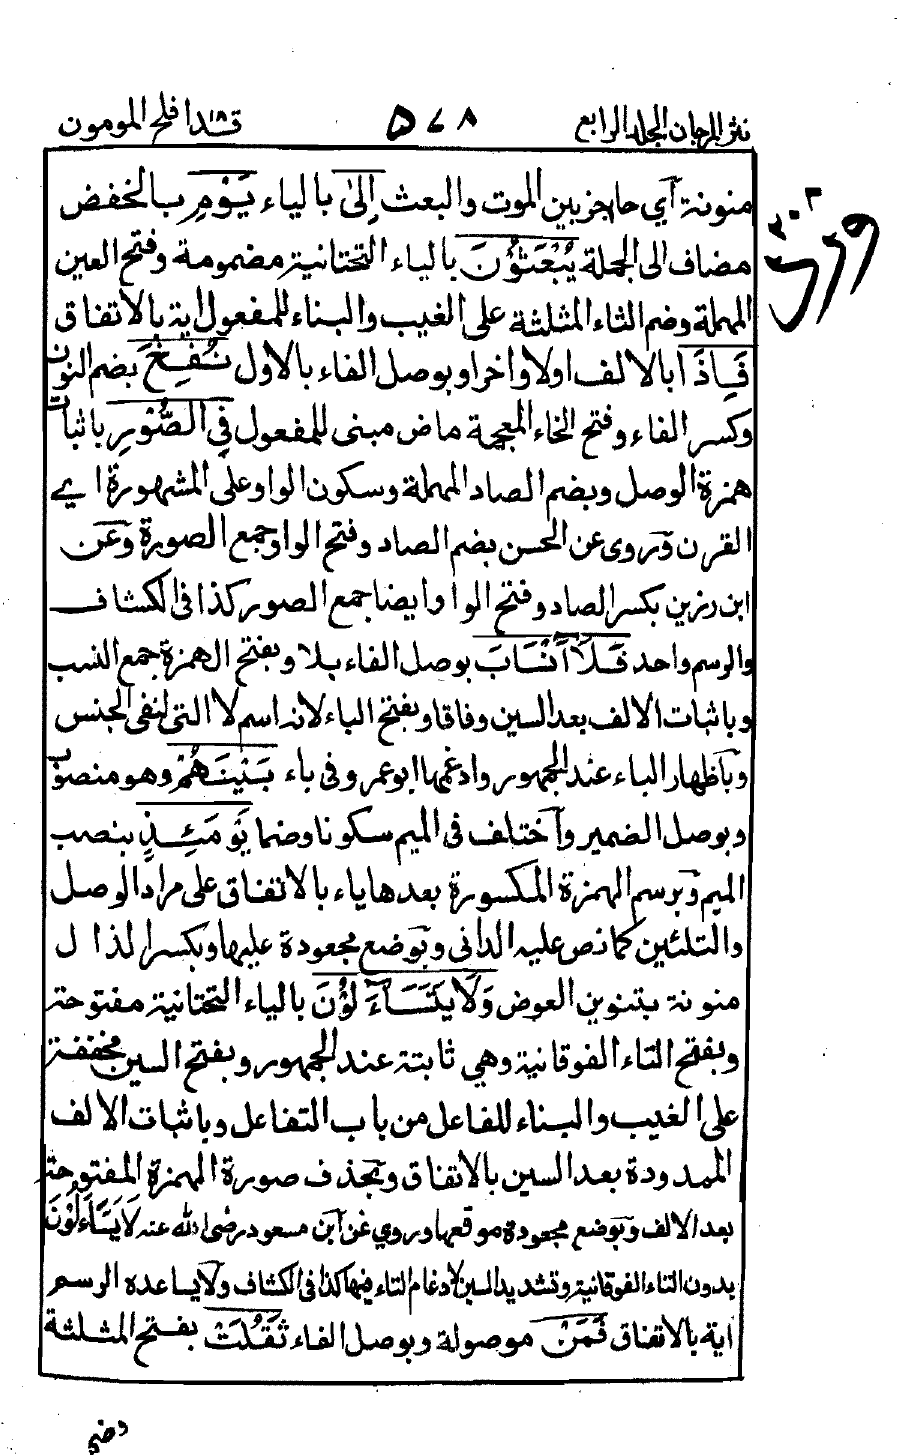 نثر المرجان المجلد الرابع ٥٧٨ قد افلح ١٨ المومنون
منونة أي حاجز بين الموت والبعث إِلىٰ بالياء يَوْمِ بالخفض
مضاف الى الجملة يُبْعَثُوْنَ بالياء التحتانية مضمومة وفتح العين
المهملة وضم الثاء المثلثة على الغيب والبناء للمفعول اية بالاتفاق
فَإِذَا بالالف اولا وآخرا وبوصل الفاء بالاول نُفِخَ بضم النون
وكسر الفاء وفتح الخاء المعجمة ماض مبنى للمفعول فِي الصُّوْرِ باثبات
همزة الوصل وبضم الصاد المهملة وسكون الواو على المشهورة اي
القرن وَروى عن الحسن بضم الصاد وفتح الواو جمع الصورة وَعَن
ابن رزين بكسر الصاد وفتح الواو أيضا جمع الصور كذا فى الكشاف
والرسم واحد فَلَآ أَنْسَابَ بوصل الفاء بلا وبفتح الهمزة جمع النسب
وباثبات الالف بعد السين وفاقا وبفتح الباء لانه اسم لا التى لنفى الجنس
وبَاظهار الباء عند الجمهور وادغمها ابو عمرو فى باء بَيْنَهُمْ وهو منصوب
وبوصل الضمير وآختلف فى الميم سكونا وضما يَوْمَئِذٍ بنصب
الميم وَبرسم الهمزة المكسورة بعدها ياء بالاتفاق على مراد الوصل
والتلئين كما نص عليه الدانى وبَوضع مجعودة عليها وبكسر الذال
منونة بتنوين العوض وَلَا يَتَسَآءَلُوْنَ بالياء التحتانية مفتوحة
وبفتح التاء الفوقانية وهي ثابتة عند الجمهور وبفتح السين مخففة
على الغيب والبناء للفاعل من باب التفاعل وباثبات الالف
الممدودة بعد السين بالاتفاق وبَحذف صورة الهمزة المفتوحة
بعد الالف وبَوضع مجعودة موقعها وروي عن آبن مسعود رضى الله عنه لَا يَسَّآءَلُوْنَ
بدون التاء الفوقانية وتشديد السين لادغام التاء فيها كذا فى الكشاف ولَا يساعده الرسم
اية بالاتفاق فَمَنْ موصولة وبوصل الفاء ثَقُلَتْ بفتح المثلثة
وضم